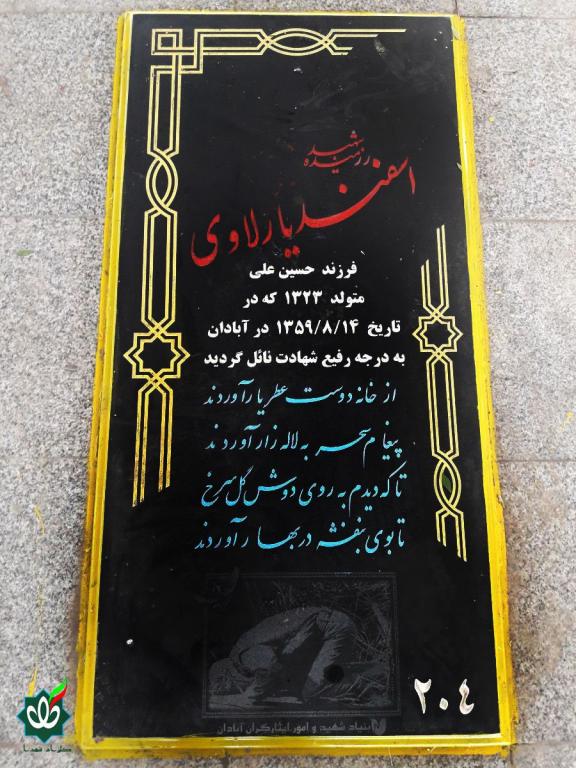 شهید
رزمنده
اسفندیار لاوی
فرزند حسین علی
متولد ۱۳۲۳ که در
تاریخ ۱۳۵۹/۸/۱۴ در آبادان
به درجه رفیع شهادت نائل گردید
از خانه دوست عطر یار آوردند
پیغام سحر به لاله زار آوردند
تا که دیدم به روی دوش گل سرخ
تا بوی بنفشه در بهار آوردند
۲۰٤
بنیاد شهید و امور ایثارگران آبادان
گلزار شهدا